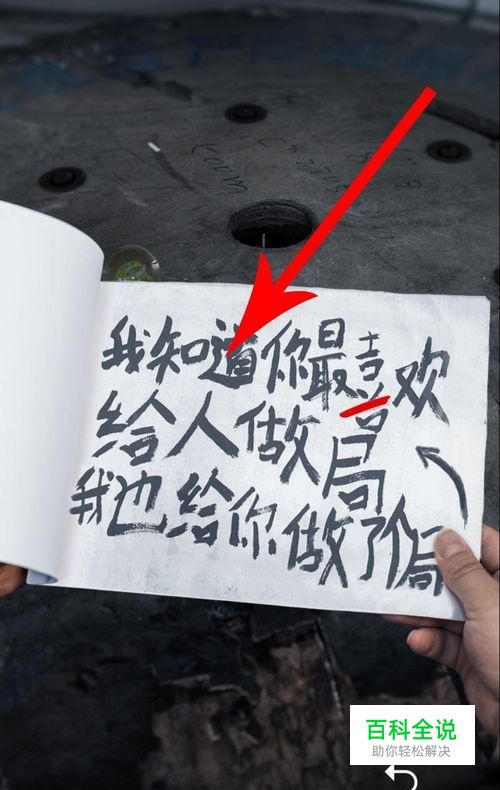 我知道你最喜欢
给人做局
我也给你做了个局
百科全说
助你轻松解决